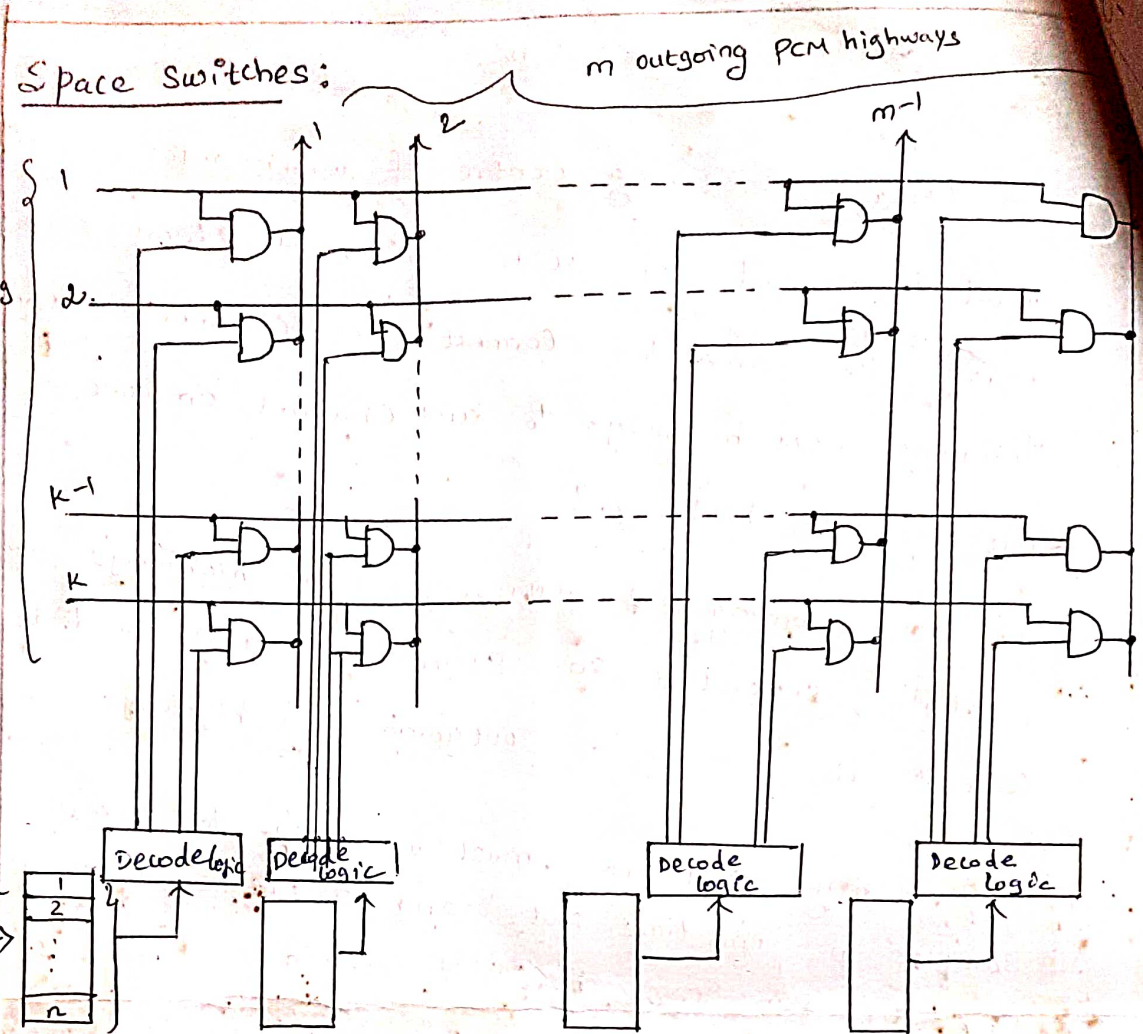 Space switches:
m outgoing PCM highways
1
2
m-1
1
2
k-1
k
Decode logic
Decode
logic
Decode
logic
Decode
logic
1
2
n